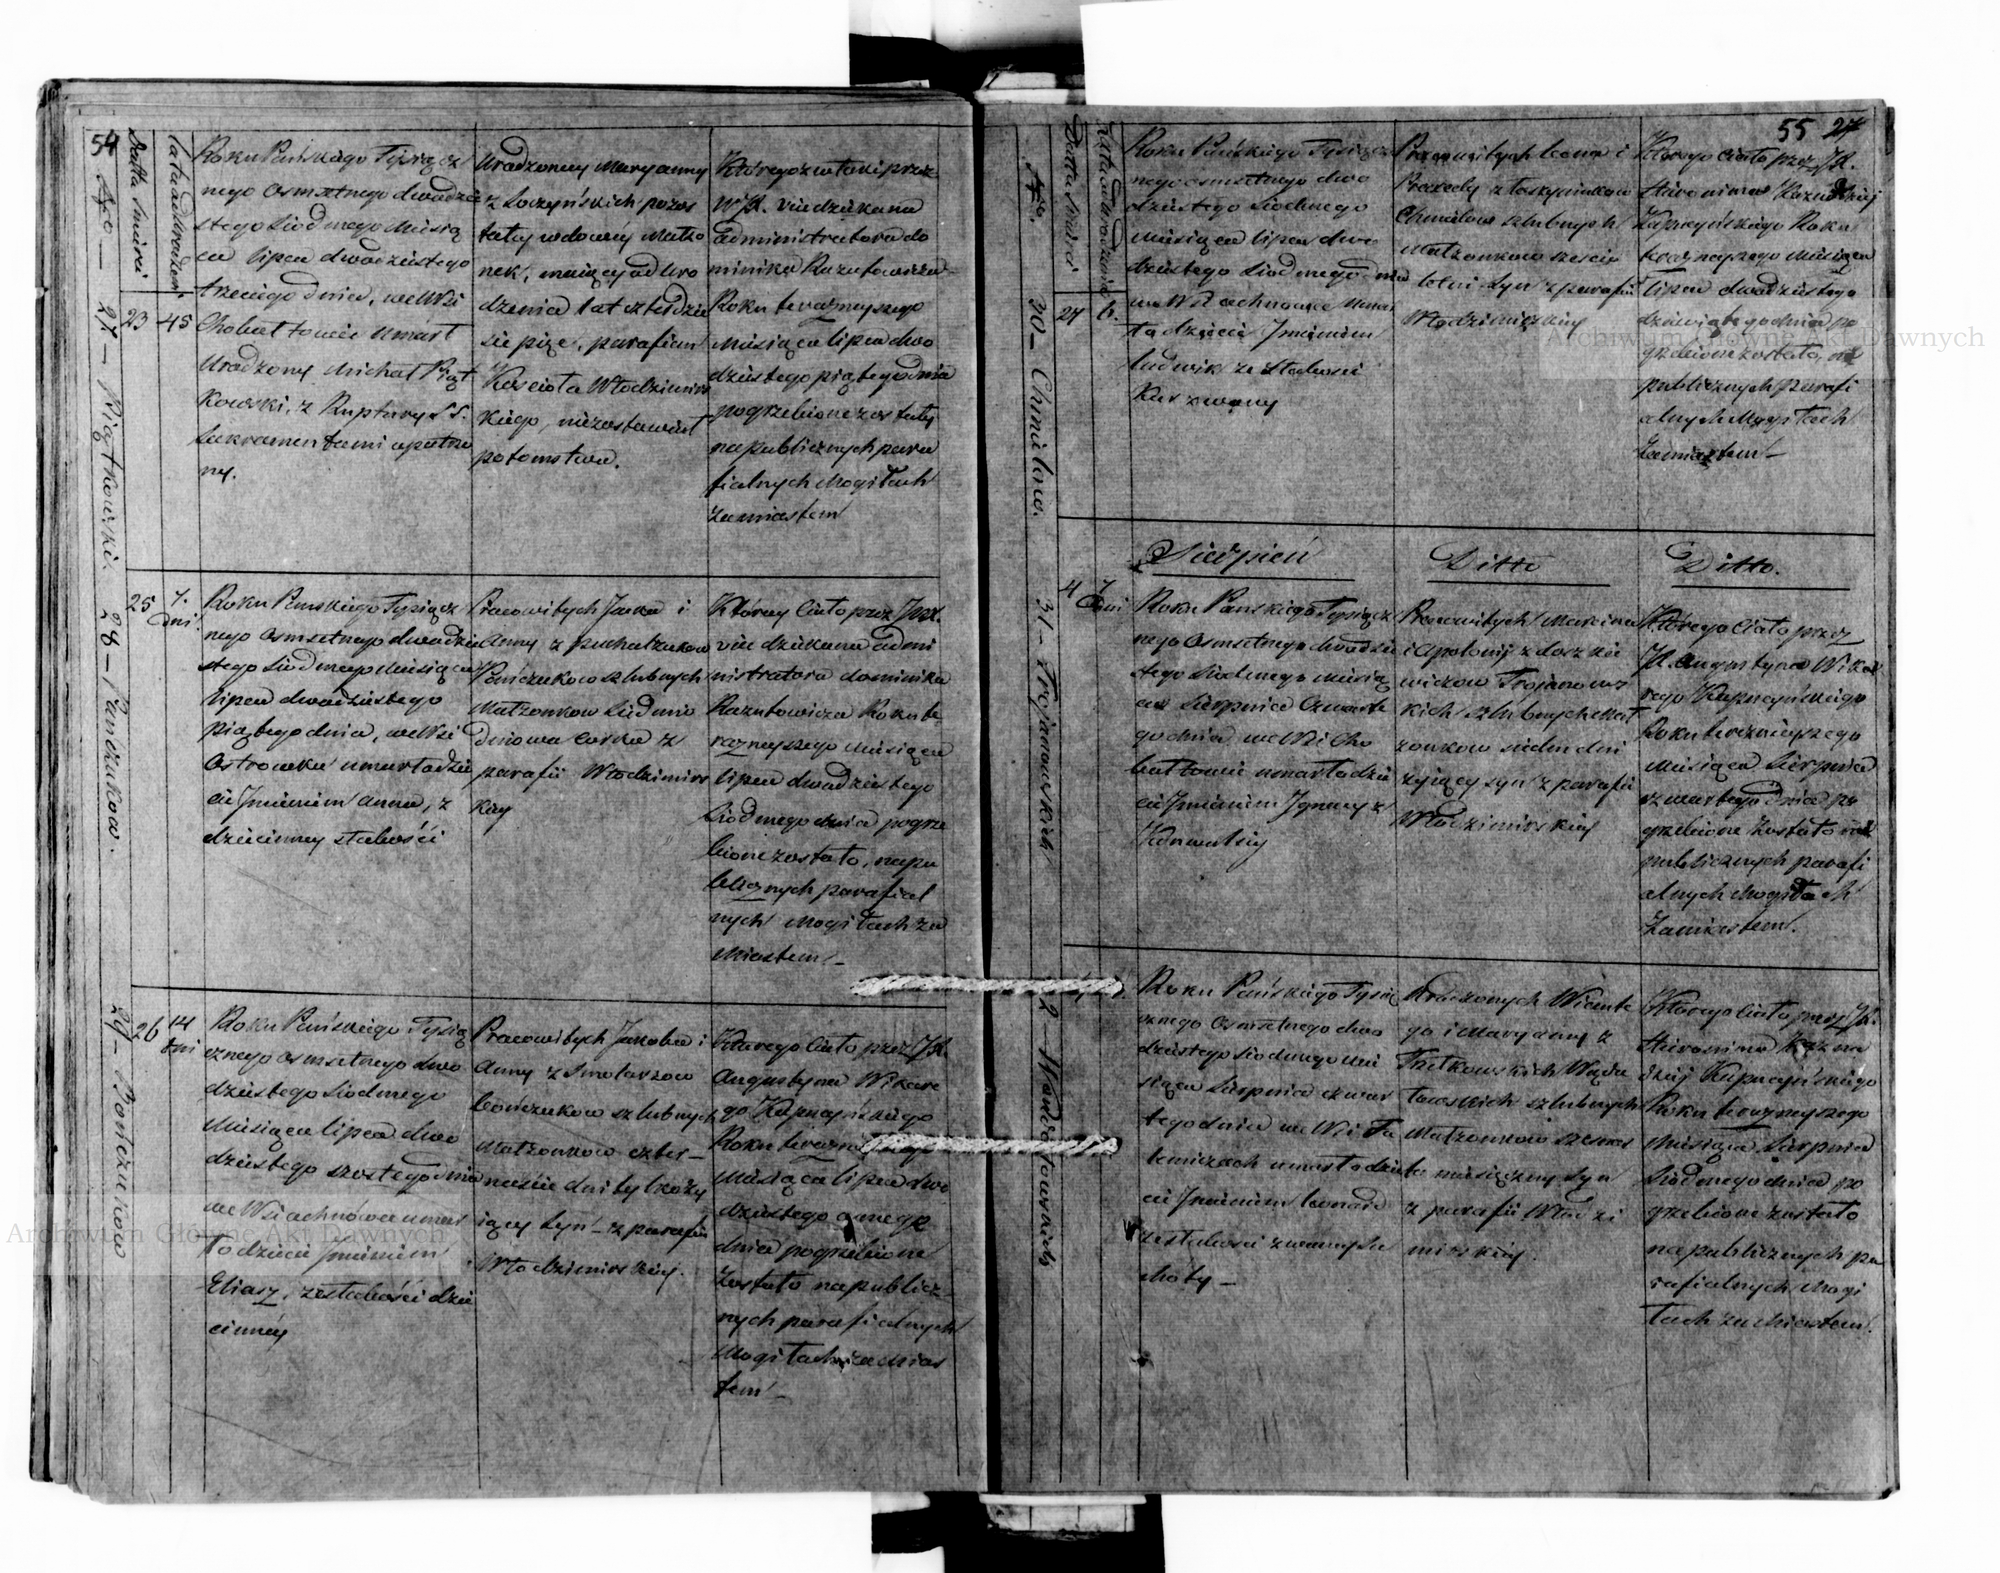 54
Nro —
Datta śmierci
Lata od urodzenia
27 — Piątkowski.
23
45
Roku Pańskiego Tysiącz
nego osmsetnego dwudzie
stego Siodmego Miesią
ca lipca dwudziestego
trzeciego dnia, we Wsi
Chobułtowie umarł
Urodzony Michał Piąt
kowski, z Ruptury SS.
Sakramentami opatrzo
ny.
Urodzoney Maryanny
z Łoczyńskich pozos
tałey wdowy Małżo
nek, maiący od Uro
dzenia lat czterdzie
ście pięć, parafian
Kościoła Włodzimirs
kiego, niezostawiwszy
potomstwa.
Którego zwłoki przez
W JX. vicedziekana
administratora Do
minika Razutowicza
Roku teraznieyszego
Miesiąca lipca dwu
dziestego piątego dnia
pogrzebione zostały
na publicznych para
fialnych Mogiłach
za miastem
28 — Pańczuków.
25
7.
dni
Roku Pańskiego Tysiącz
nego osmsetnego dwudzie
stego Siodmego Miesiąca
lipca dwudziestego
piątego dnia, we Wsi
Ostrowku umarło dzie
cie Imieniem Anna, z
dziecinney słabości
Pracowitych Jacka i
Anny z
Pańczukow szlubnych
Małżonkow Siedmio
dniowa Corka z
parafii Włodzimirs
kiey
Którey Ciało przez JWX.
vice dziekana admi
nistratora Dominika
Razutowicza Roku te
raznieyszego Miesiąca
lipca dwudziestego
Siodmego dnia pogrze
bione zostało, na pu
blicznych parafial
nych Mogiłach za
Miastem —
29 — Bończuków
26
14
dni
Roku Pańskiego Tysią
cznego osmsetnego dwu
dziestego Siodmego
Miesiąca lipca dwu
dziestego szostego dnia
we Wsi achnówce umar
ło dziecie Imieniem
Eliasz, ze słabości dzie
cinney
Pracowitych Jakoba i
Anny z Smolarzow
Bończukow szlubnych
Małżonkow czter —
naście dni tylko ży
iący Syn — z parafii
Włodzimirskiey.
Którego Ciało przez JX.
Augustyna Wikare
go Kapucyńskiego
Roku
Miesiąca lipca dwu
dziestego osmego
dnia pogrzebione
zostało na publicz
nych parafialnych
Mogiłach za Mias
tem —
55 27
Nro
Datta śmierci
Lata od urodzenia
30 — Chmielow.
27
6.
Roku Pańskiego Tysiącz
nego osmsetnego dwu
dziestego Siodmego
Miesiąca lipca dwu
dziestego Siodmego dnia
we Wsi achnowce umar
ło dziecie Imieniem
Ludwik ze słabości
Kur zwaney
Pracowitych Leona i
Praxedy z
Chmielow szlubnych
Małżonkow sześcio
letni Syn z parafii
Włodzimirskiey
Którego Ciało przez JX.
Hieronima Kaznodzieję
Kapucyńskiego Roku
teraznieyszego Miesiąca
lipca dwudziestego
dziewiątego dnia po
grzebione zostało, na
publicznych parafi
alnych Mogiłach
za miastem —
Sierpień
Ditto
Ditto.
31 — Trojanowskich
4
7
dni
Roku Pańskiego Tysiącz
nego osmsetnego dwudzie
stego Siodmego Miesią
ca Sierpnia Czwarte
go dnia we Wsi Cho
bułtowie umarło dzie
cie Imieniem Ignacy z
Konwulsiy
Pracowitych Marcina
i Apolonij z
wiczow Trojanows
kich szlubnych Mał
żonkow siedm dni
żyiący syn z parafii
Włodzimirskiey
Którego Ciało przez
JX. Augustyna Wika
rego Kapucyńskiego
Roku teraznieyszego
Miesiąca Sierpnia
czwartego dnia po
grzebione zostało na
publicznych parafi
alnych Mogiłach
za miastem.
Roku Pańskiego Tysią
cznego osmsetnego dwu
dziestego Siodmego Mie
siąca Sierpnia czwar
tego dnia we Wsi Fa
lemiczach umarło dzie
cie Imieniem Leonard
ze słabości zwaney Su
choty —
Urodzonych Wincente
go i Maryanny z
szlubnych
Małżonkow
miesięczny syn
z parafii Włodzi
mirskiey.
Którego Ciało przez JX.
Hieronima Kazno
dzieję Kapucyńskiego
Roku teraznieyszego
Miesiąca Sierpnia
Siodmego dnia po
grzebione zostało
na publicznych pa
rafialnych Mogi
łach za Miastem.
Archiwum Główne Akt Dawnych
Archiwum Główne Akt Dawnych